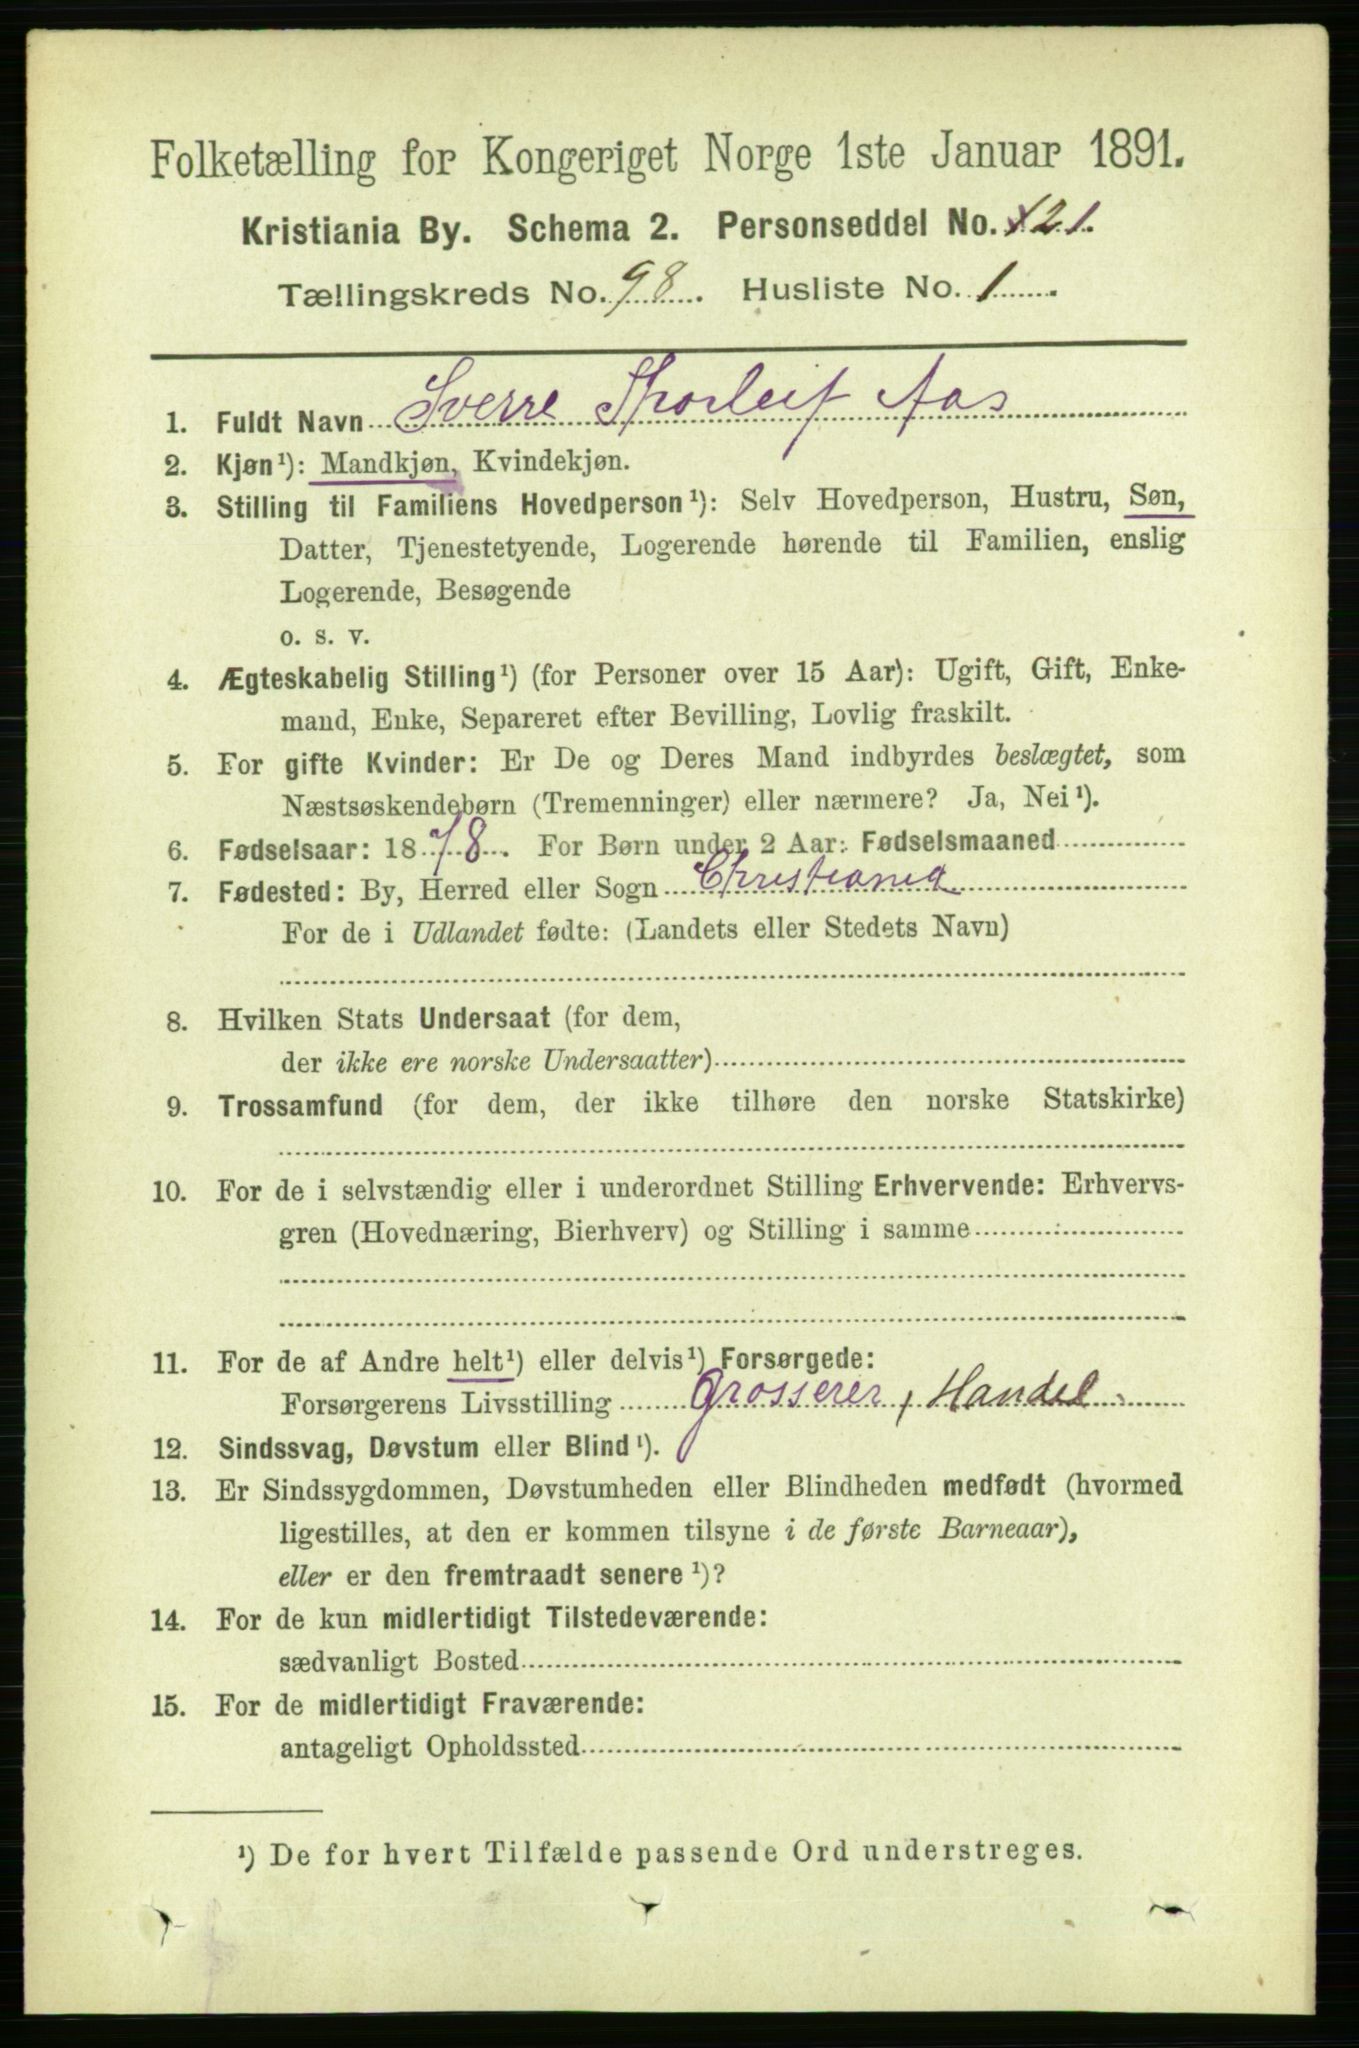 Folketælling for Kongeriget Norge 1ste Januar 1891.
Kristiania By. Schema 2. Personseddel No. 21.
Tællingskreds No. 98. Husliste No. 1.
1. Fuldt Navn Sverre Thorleif Aas
2. Kjøn¹): Mandkjøn, Kvindekjøn.
3. Stilling til Familiens Hovedperson¹): Selv Hovedperson, Hustru, Søn,
Datter, Tjenestetyende, Logerende hørende til Familien, enslig
Logerende, Besøgende
o. s. v.
4. Ægteskabelig Stilling¹) (for Personer over 15 Aar): Ugift, Gift, Enke-
mand, Enke, Separeret efter Bevilling, Lovlig fraskilt.
5. For gifte Kvinder: Er De og Deres Mand indbyrdes beslægtet, som
Næstsøskendebørn (Tremenninger) eller nærmere? Ja, Nei¹).
6. Fødselsaar: 1878. For Børn under 2 Aar: Fødselsmaaned
7. Fødested: By, Herred eller Sogn Christiania
For de i Udlandet fødte: (Landets eller Stedets Navn)
8. Hvilken Stats Undersaat (for dem,
der ikke ere norske Undersaatter)
9. Trossamfund (for dem, der ikke tilhøre den norske Statskirke)
10. For de i selvstændig eller i underordnet Stilling Erhvervende: Erhvervs-
gren (Hovednæring, Bierhverv) og Stilling i samme
11. For de af Andre helt¹) eller delvis¹) Forsørgede:
Forsørgerens Livsstilling Grosserer, Handel
12. Sindssvag, Døvstum eller Blind¹).
13. Er Sindssygdommen, Døvstumheden eller Blindheden medfødt (hvormed
ligestilles, at den er kommen tilsyne i de første Barneaar),
eller er den fremtraadt senere¹)?
14. For de kun midlertidigt Tilstedeværende:
sædvanligt Bosted
15. For de midlertidigt Fraværende:
antageligt Opholdssted
¹) De for hvert Tilfælde passende Ord understreges.